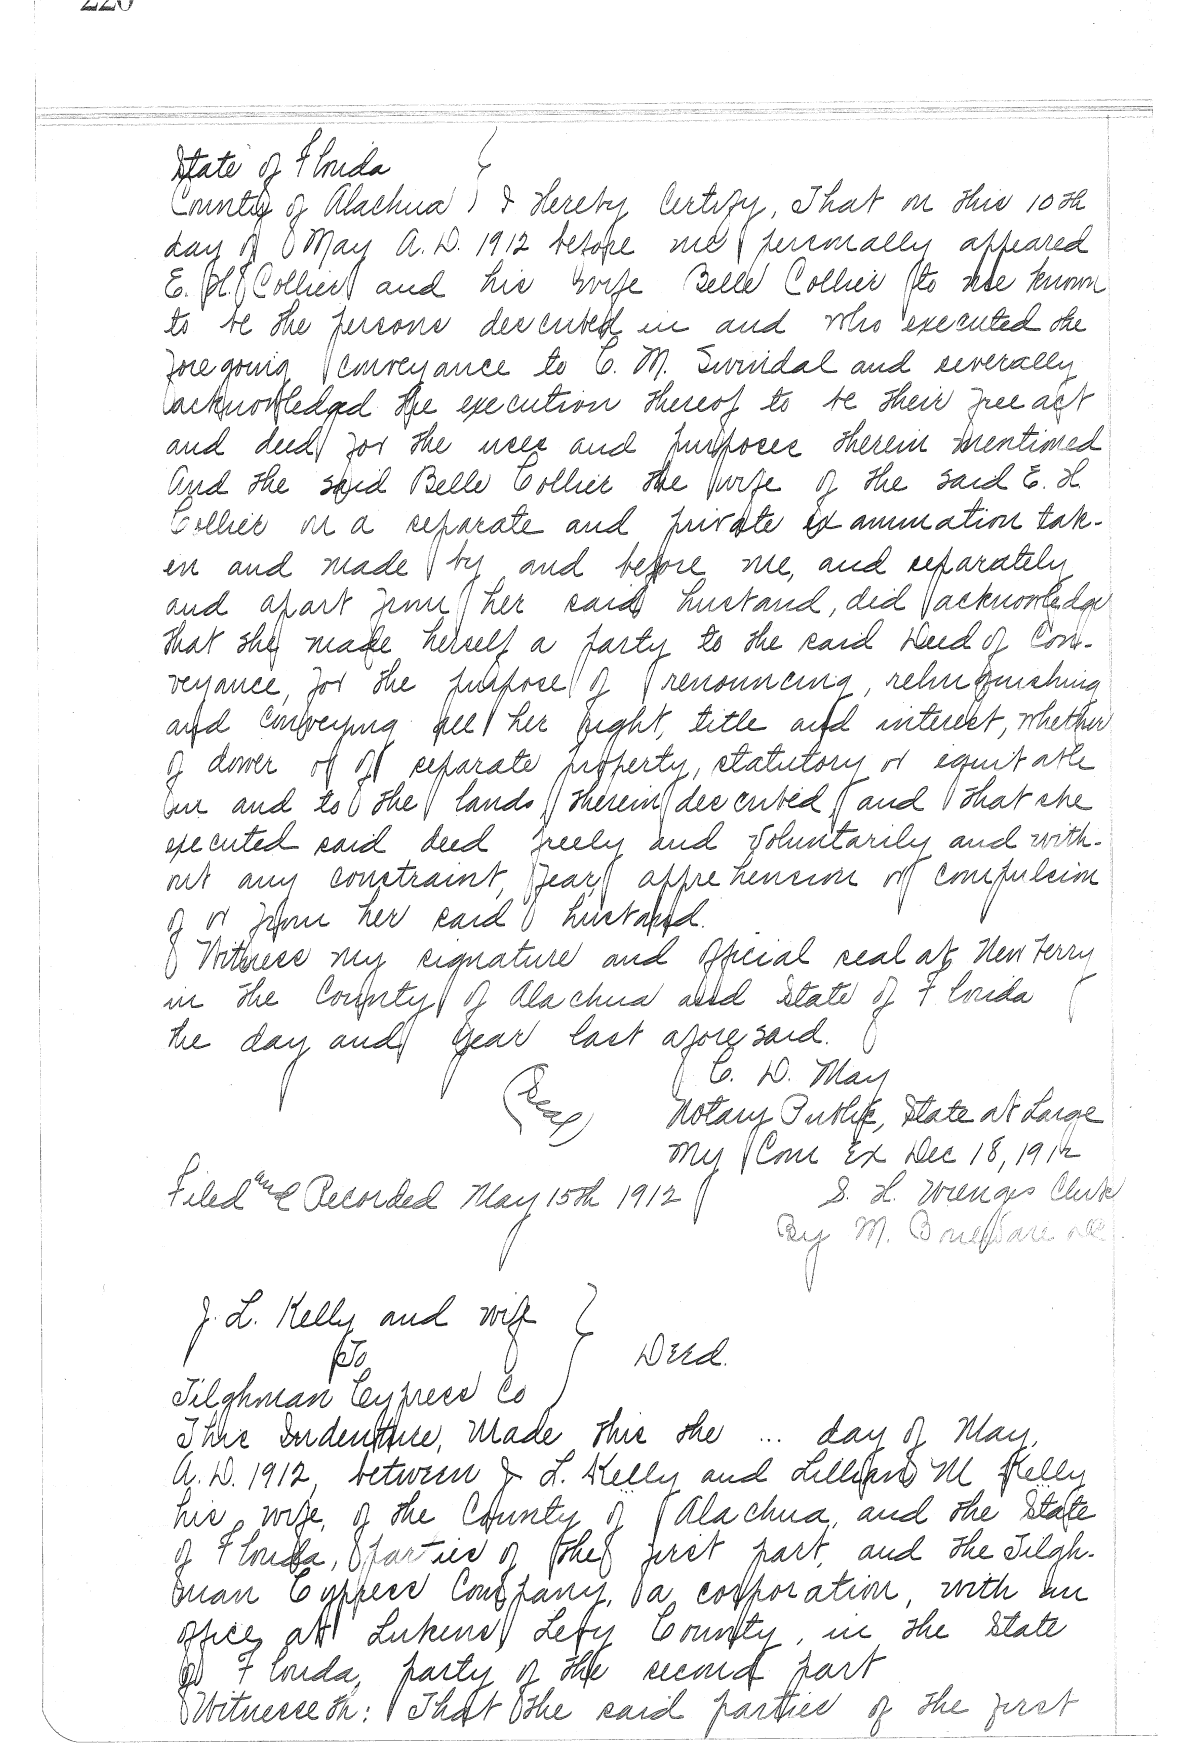 State of Florida
County of Alachua } I Hereby Certify, That on this 10th
day of May A.D. 1912 before me personally appeared
E. H. Collier and his wife Belle Collier to me known
to be the persons described in and who executed the
foregoing conveyance to C. M. Swindal and severally
acknowledged the execution thereof to be their free act
and deed for the uses and purposes therein mentioned
And the said Belle Collier the wife of the said E. H
Collier on a separate and private examination tak-
en and made by and before me, and separately
and apart from her said husband, did acknowledge
that she made herself a party to the said Deed of Con-
veyance, for the purpose of renouncing, relinquishing
and conveying all her right, title and interest, whether
of dower or of separate property, statutory or equitable
in and to the lands therein described, and that she
executed said deed freely and voluntarily and with-
out any constraint, fear, apprehension or compulsion
of or from her said husband.
Witness my signature and official seal at New Ferry
in the County of Alachua and State of Florida
the day and year last aforesaid.
C. D. May
(Seal) Notary Public, State at Large
My Com Ex Dec 18, 1912
Filed and Recorded May 15th 1912 S. H. Wienges Clerk
By M.
J. L. Kelly and wife
To } Deed.
Tilghman Cypress Co
This Indenture, Made this the ... day of May,
A.D. 1912, between J L. Kelly and Lillian M Kelly
his wife, of the County of Alachua, and the State
of Florida, parties of the first part, and the Tilgh-
man Cypress Company, a corporation, with an
office at Lukens, Levy County, in the State
of Florida, party of the second part
Witnesseth: That the said parties of the first